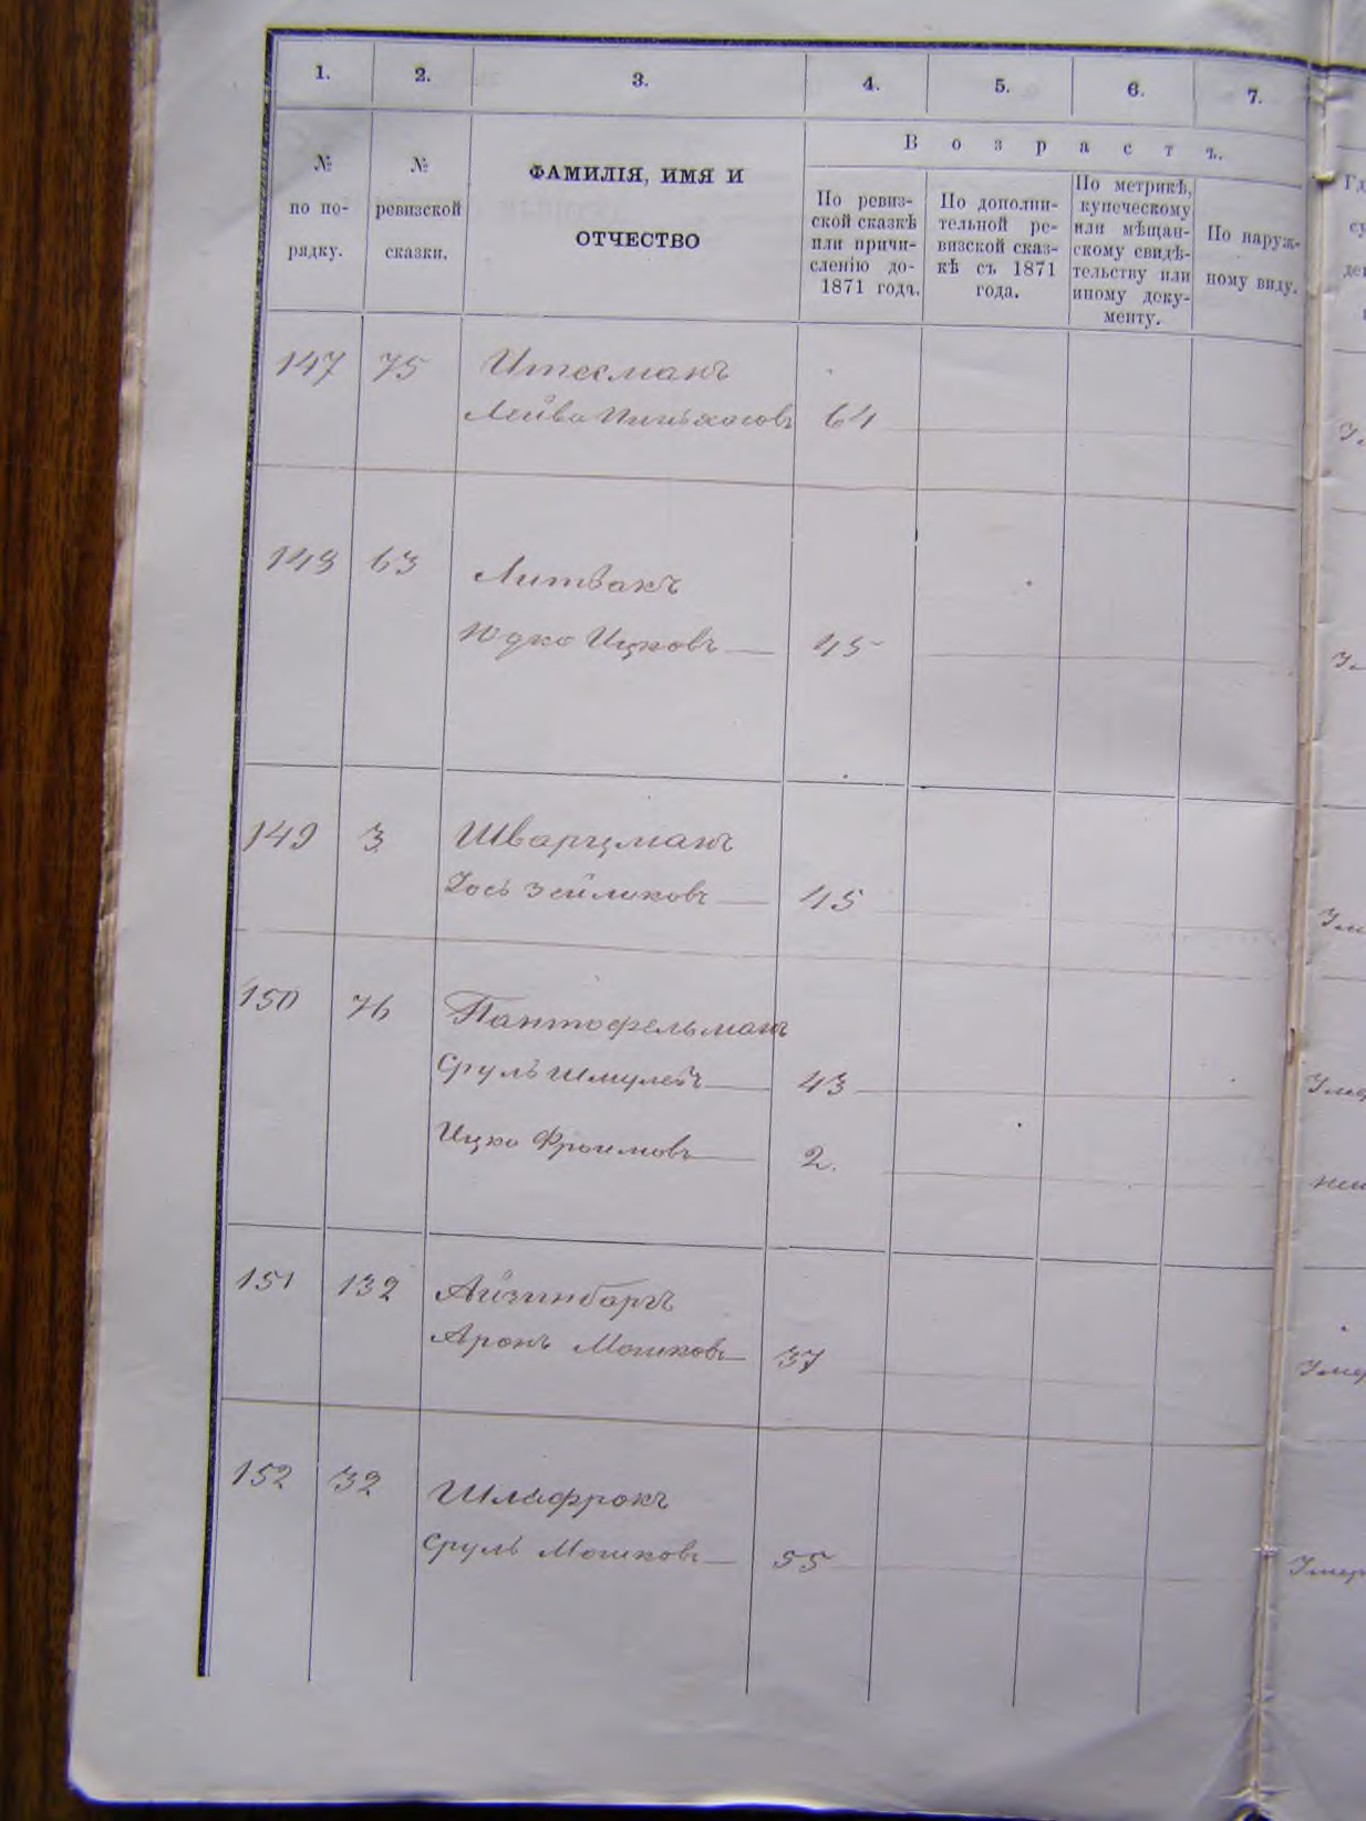 1. 2. 3. 4. 5. 6. 7.
№ по по-рядку.
№ ревизской сказки.
ФАМИЛІЯ, ИМЯ И
ОТЧЕСТВО
В о з р а с т ъ.
По ревиз-
ской сказкѣ
или причи-
сленію до-
1871 года.
По дополни-
тельной ре-
визской сказ-
кѣ съ 1871
года.
По метрикѣ,
купеческому
или мѣщан-
скому свидѣ-
тельству или
иному доку-
менту.
По наруж-
ному виду.
147 75 Итесманъ
Лейва Пинхасовъ 64
148 63 Литвакъ
Юдко Ицковъ 45
149 3 Шварцманъ
Іось Зейликовъ 45
150 76 Пантофельманъ
Сруль Шмулевъ 43
Ицко Фроимовъ 2.
151 132 Айзинбаргъ
Аронъ Мошковъ 37
152 32 Шлафрокъ
Сруль Мошковъ 55